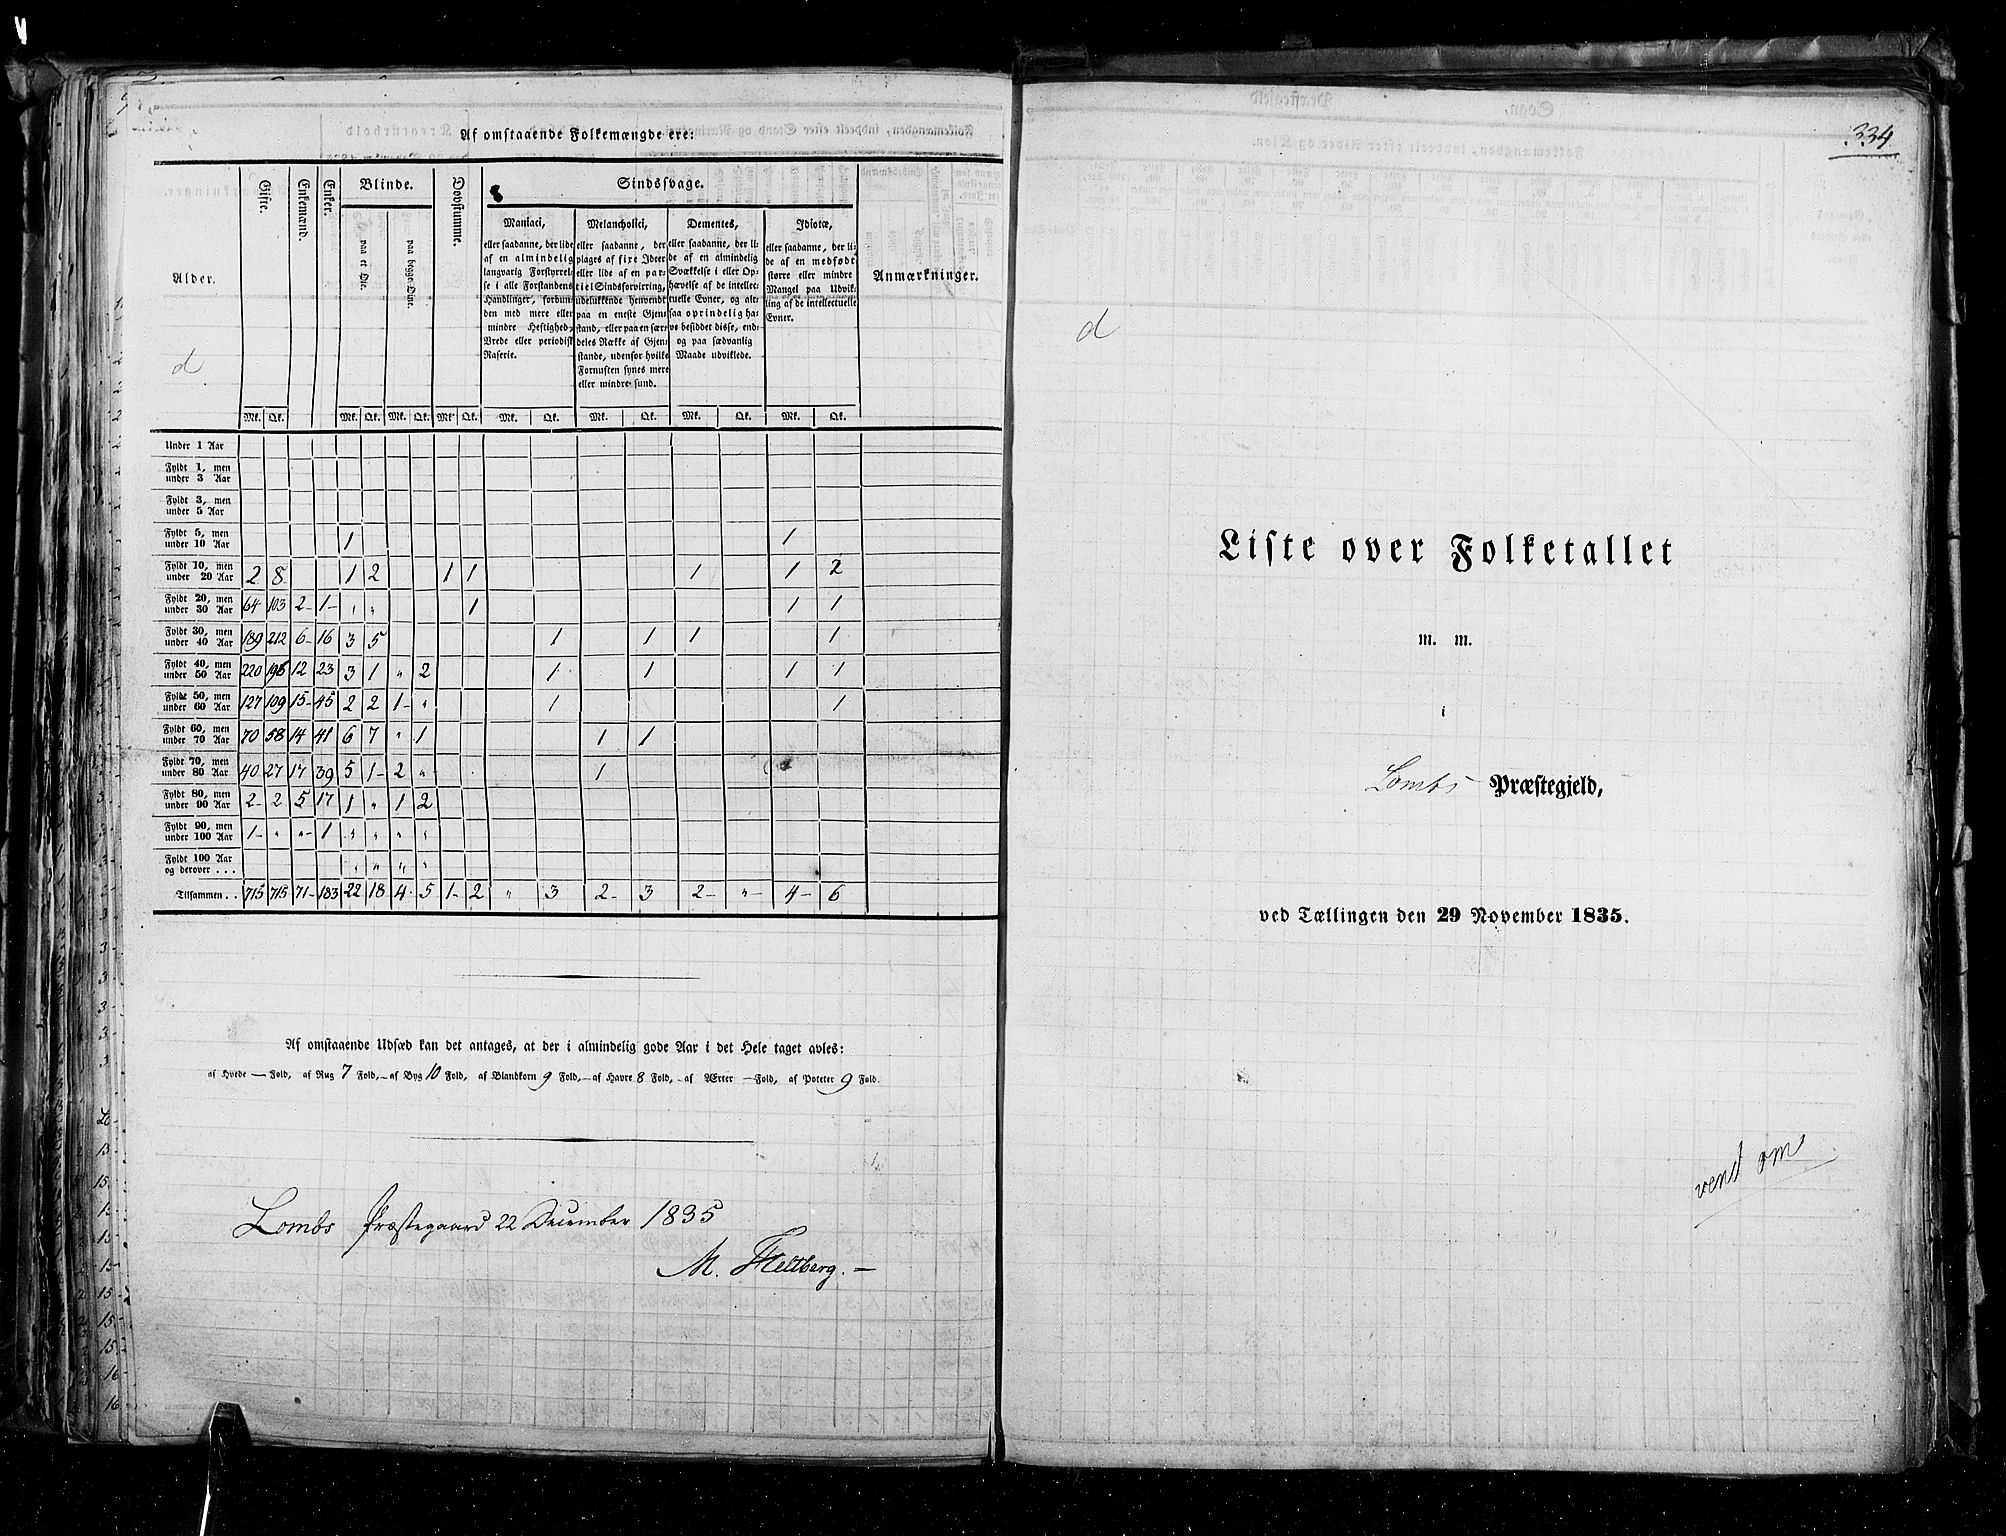 Af omstaaende Folkemængde ere:
Alder.
Gifte.
Enkemænd.
Enker.
Blinde.
paa et Øie.
paa begge Øine.
Døvstumme.
Sindssvage.
Maniaci,
eller saadanne, der lide
af en almindelig
langvarig Forstyrrel-
se i alle Forstandens
Handlinger, forbun-
den med mere eller
mindre Heftighed,
Vrede eller periodisk
Raserie.
Melancholici,
eller saadanne, der
plages af fixe Ideer
eller lide af en par-
tiel Sindsforvirring,
udelukkende henvendt
paa en eneste Gjen-
stand, eller paa en sær-
deles Række af Gjen-
stande, udenfor hvilke
Fornuften synes mere
eller mindre sund.
Dementes,
eller saadanne, der li-
de af en almindelig
Svækkelse i eller Op-
hævelse af de intellec-
tuelle Evner, og alt-
saa oprindelig ha-
ve besiddet disse, end-
og paa sædvanlig
Maade udviklede.
Idiotæ,
eller saadanne, der li-
de af en medfødt
større eller mindre
Mangel paa Udvik-
ling af de intellectuelle
Evner.
Anmærkninger.
d
Mk. Qk. Mk. Qk. Mk. Qk. Mk. Qk. Mk. Qk. Mk. Qk. Mk. Qk. Mk. Qk.
Under 1 Aar
Fyldt 1, men
under 3 Aar
Fyldt 3, men
under 5 Aar
Fyldt 5, men
under 10 Aar 1 1
Fyldt 10, men
under 20 Aar 2 8 1 2 1 1 1 1 2
Fyldt 20, men
under 30 Aar 64 103 2- 1- " " 1 1 1
Fyldt 30, men
under 40 Aar 189 212 6- 16 3 5 1 1 1 1
Fyldt 40, men
under 50 Aar 220 196 12 23 3 1 " 2 1 1 1 1
Fyldt 50, men
under 60 Aar 127 109 15- 45 2 2 1- " 1 1
Fyldt 60, men
under 70 Aar 70 58 14 41 6 7 " 1 1 1
Fyldt 70, men
under 80 Aar 40 27 17 39 5 1- 2 " 1
Fyldt 80, men
under 90 Aar 2- 2 5 17 1 " 1 2
Fyldt 90, men
under 100 Aar 1- " "- 1 " " " "
Fyldt 100 Aar
og derover . . . " " " "
Tilsammen . . 715 715 71- 183 22 18 4- 5 1- 2 " 3 2- 3 2- "- 4- 6
Af omstaaende Udsæd kan det antages, at der i almindelig gode Aar i det Hele taget avles:
af Hvede — Fold, af Rug 7 Fold, — af Byg 10 Fold, af Blandkorn 9 Fold, — af Havre 8 Fold, — af Ærter — Fold, af Poteter 9 Fold.
Lombs Præstegaard 22 December 1835
334
d
Liste over Folketallet
m. m.
i
Lombs Præstegjeld,
ved Tællingen den 29 November 1835.
vend om